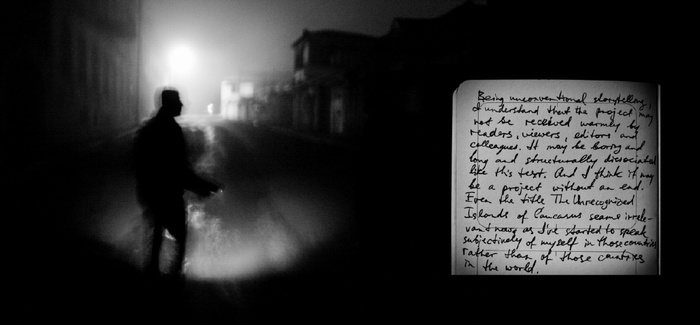 Being unconventional storytelling,
I understand that the project may
not be received warmly by
readers, viewers, editors and
colleagues. It may be boring and
long and structurally dissociated
like this text. And I think it may
be a project without an end.
Even the title The Unrecognized
Islands of Caucasus seems irrele-
vant now as I've started to speak
subjectively of myself in those countries
rather than of those countries
in the world.